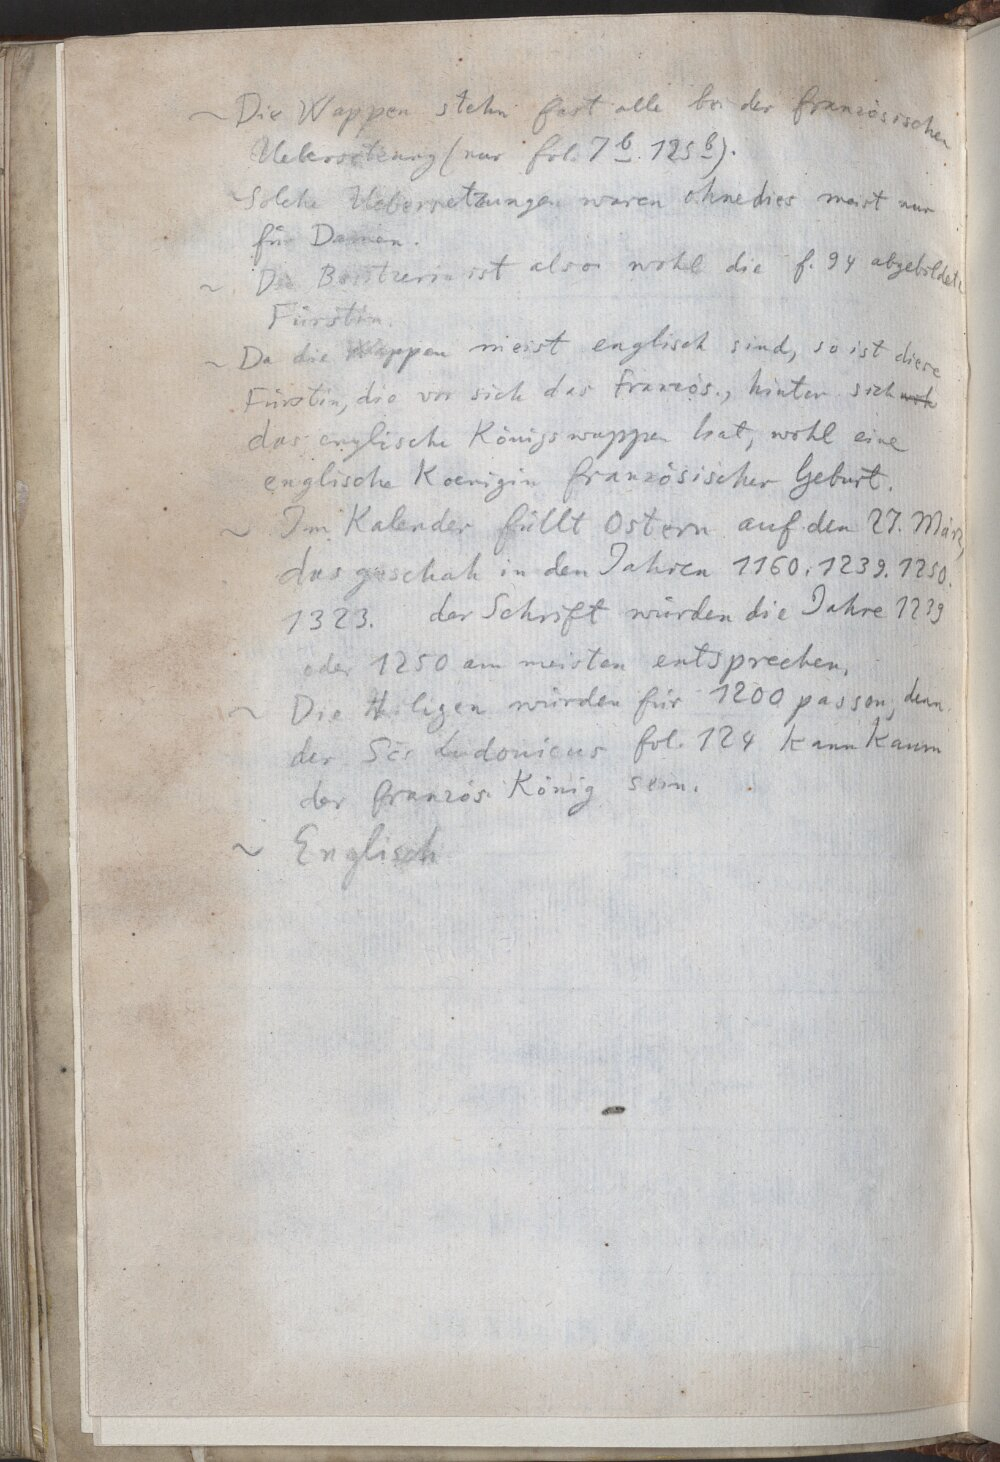 ~ Die Wappen stehn fast alle bei der französischen
Uebersetzung (nur fol. 7 b. 125 b).
~ Solche Uebersetzungen waren ohnedies meist nur
für Damen.
~ Die Besitzerin ist also wohl die f. 94 abgebildete
Fürstin.
~ Da die Wappen meist englisch sind, so ist diese
Fürstin, die vor sich das französ., hinter sich
das englische Königswappen hat, wohl eine
englische Koenigin französischer Geburt.
~ Im Kalender fällt Ostern auf den 27. März,
das geschah in den Jahren 1160. 1239. 1250.
1323. der Schrift würden die Jahre 1239
oder 1250 am meisten entsprechen.
~ Die Heiligen würden für 1200 passen, denn
der Scs Ludovicus fol. 124 kann kaum
der französ. König sein.
~ Englisch